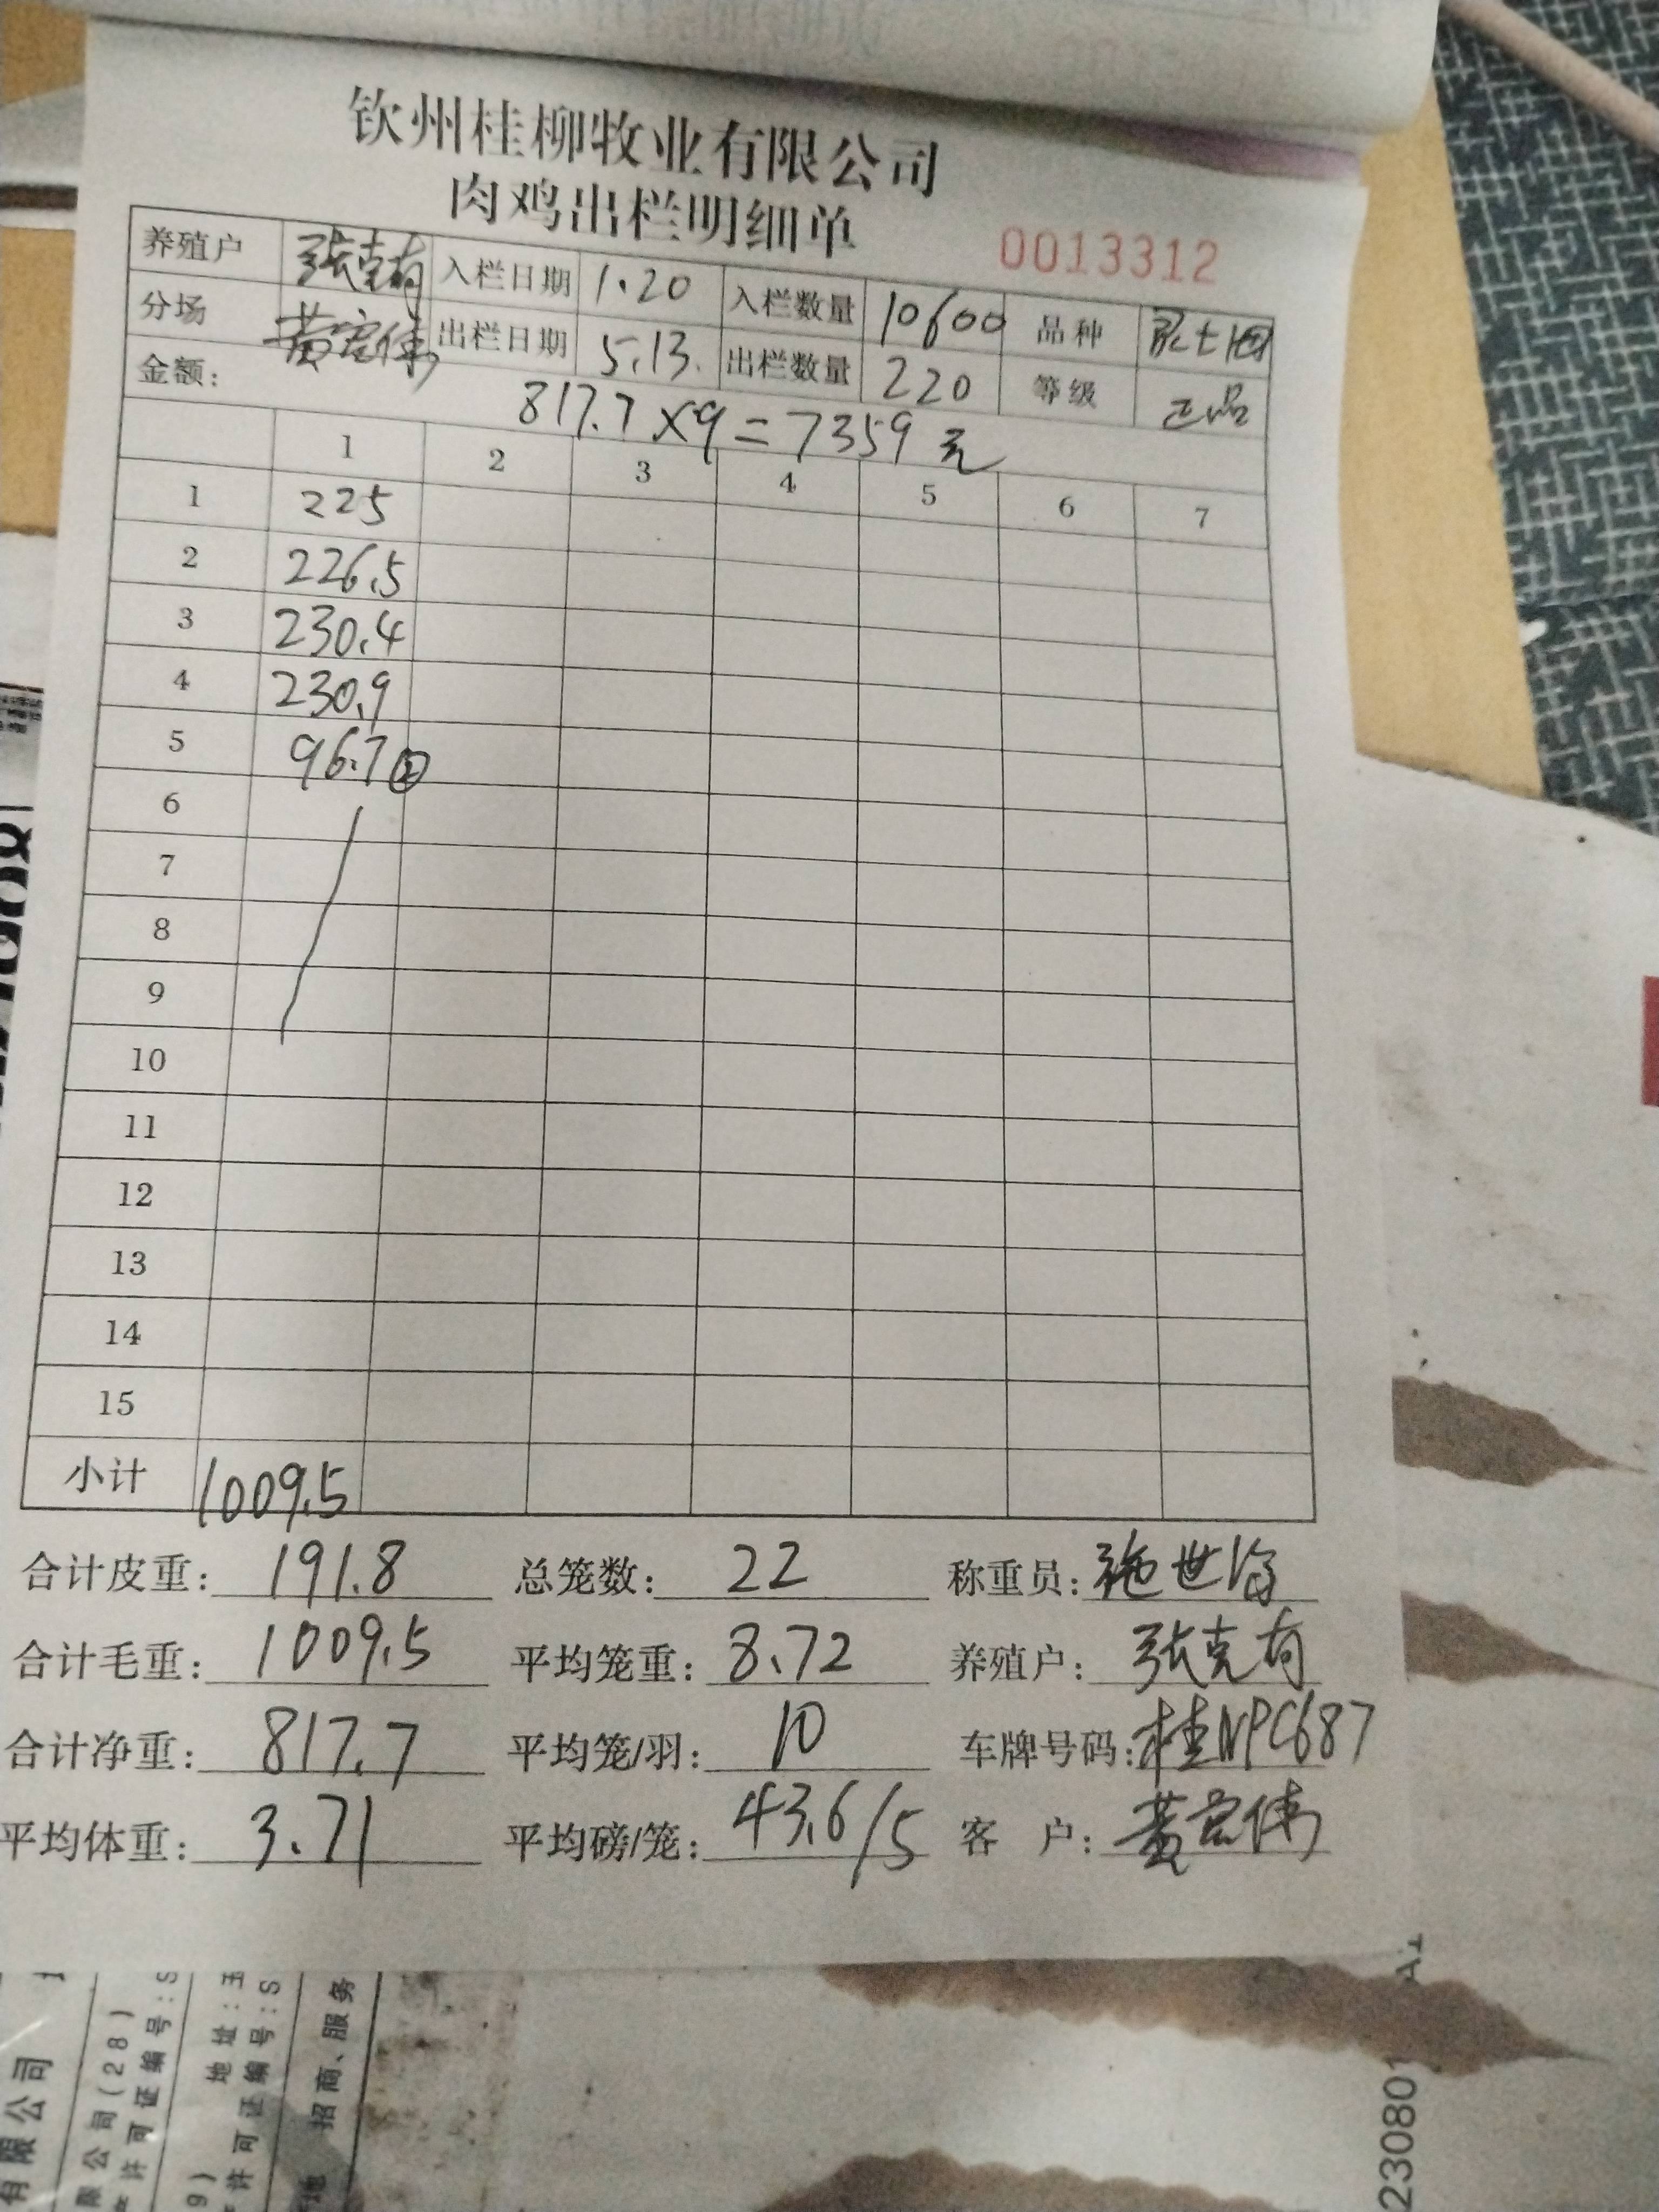 钦州桂柳牧业有限公司
肉鸡出栏明细单
0013312
养殖户 张克有 入栏日期 1.20 入栏数量 10600 品种
分场 黄宏伟 出栏日期 5.13. 出栏数量 220 等级 正品
金额: 817.7×9=7359元
1 2 3 4 5 6 7
1 225
2 226.5
3 230.4
4 230.9
5 96.7 ②
6
7
8
9
10
11
12
13
14
15
小计 1009.5
合计皮重: 191.8 总笼数: 22 称重员: 施世海
合计毛重: 1009.5 平均笼重: 8.72 养殖户: 张克有
合计净重: 817.7 平均笼/羽: 10 车牌号码: 桂NPC687
平均体重: 3.71 平均磅/笼: 43.6/5 客 户: 黄宏伟
有限公司
限公司(28)
许可证编号:S
地址:玉
许可证编号:S
招商、服务
230801